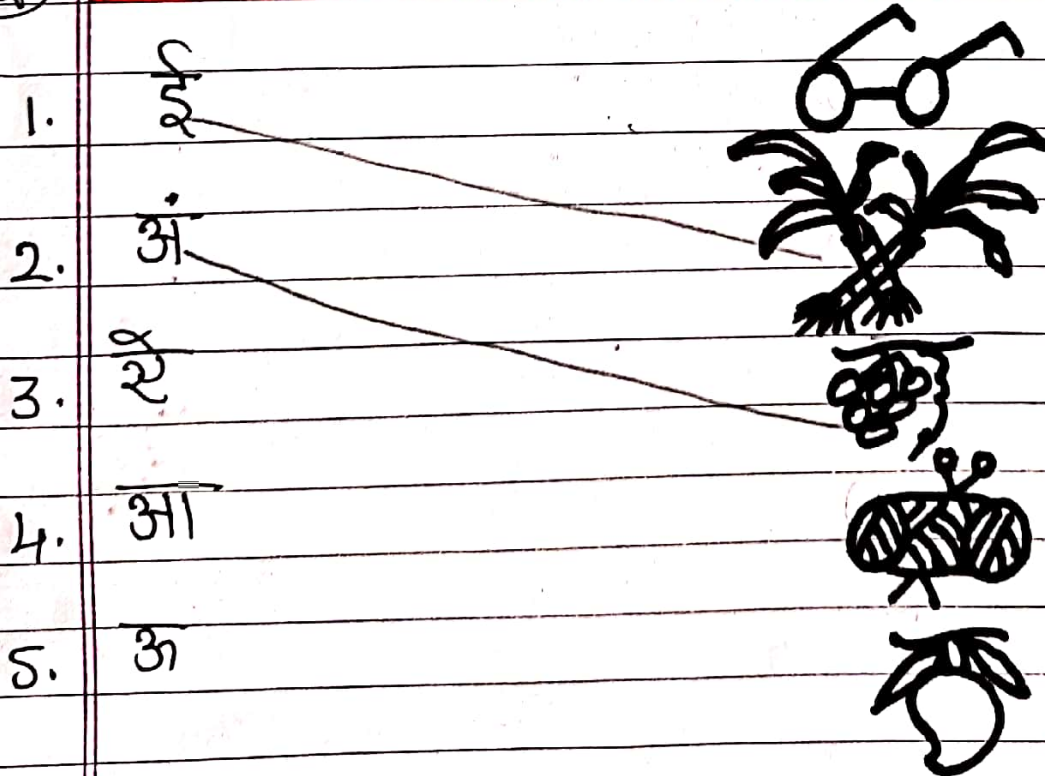 1. ई
2. अं
3. ऐ
4. आ
5. ऊ